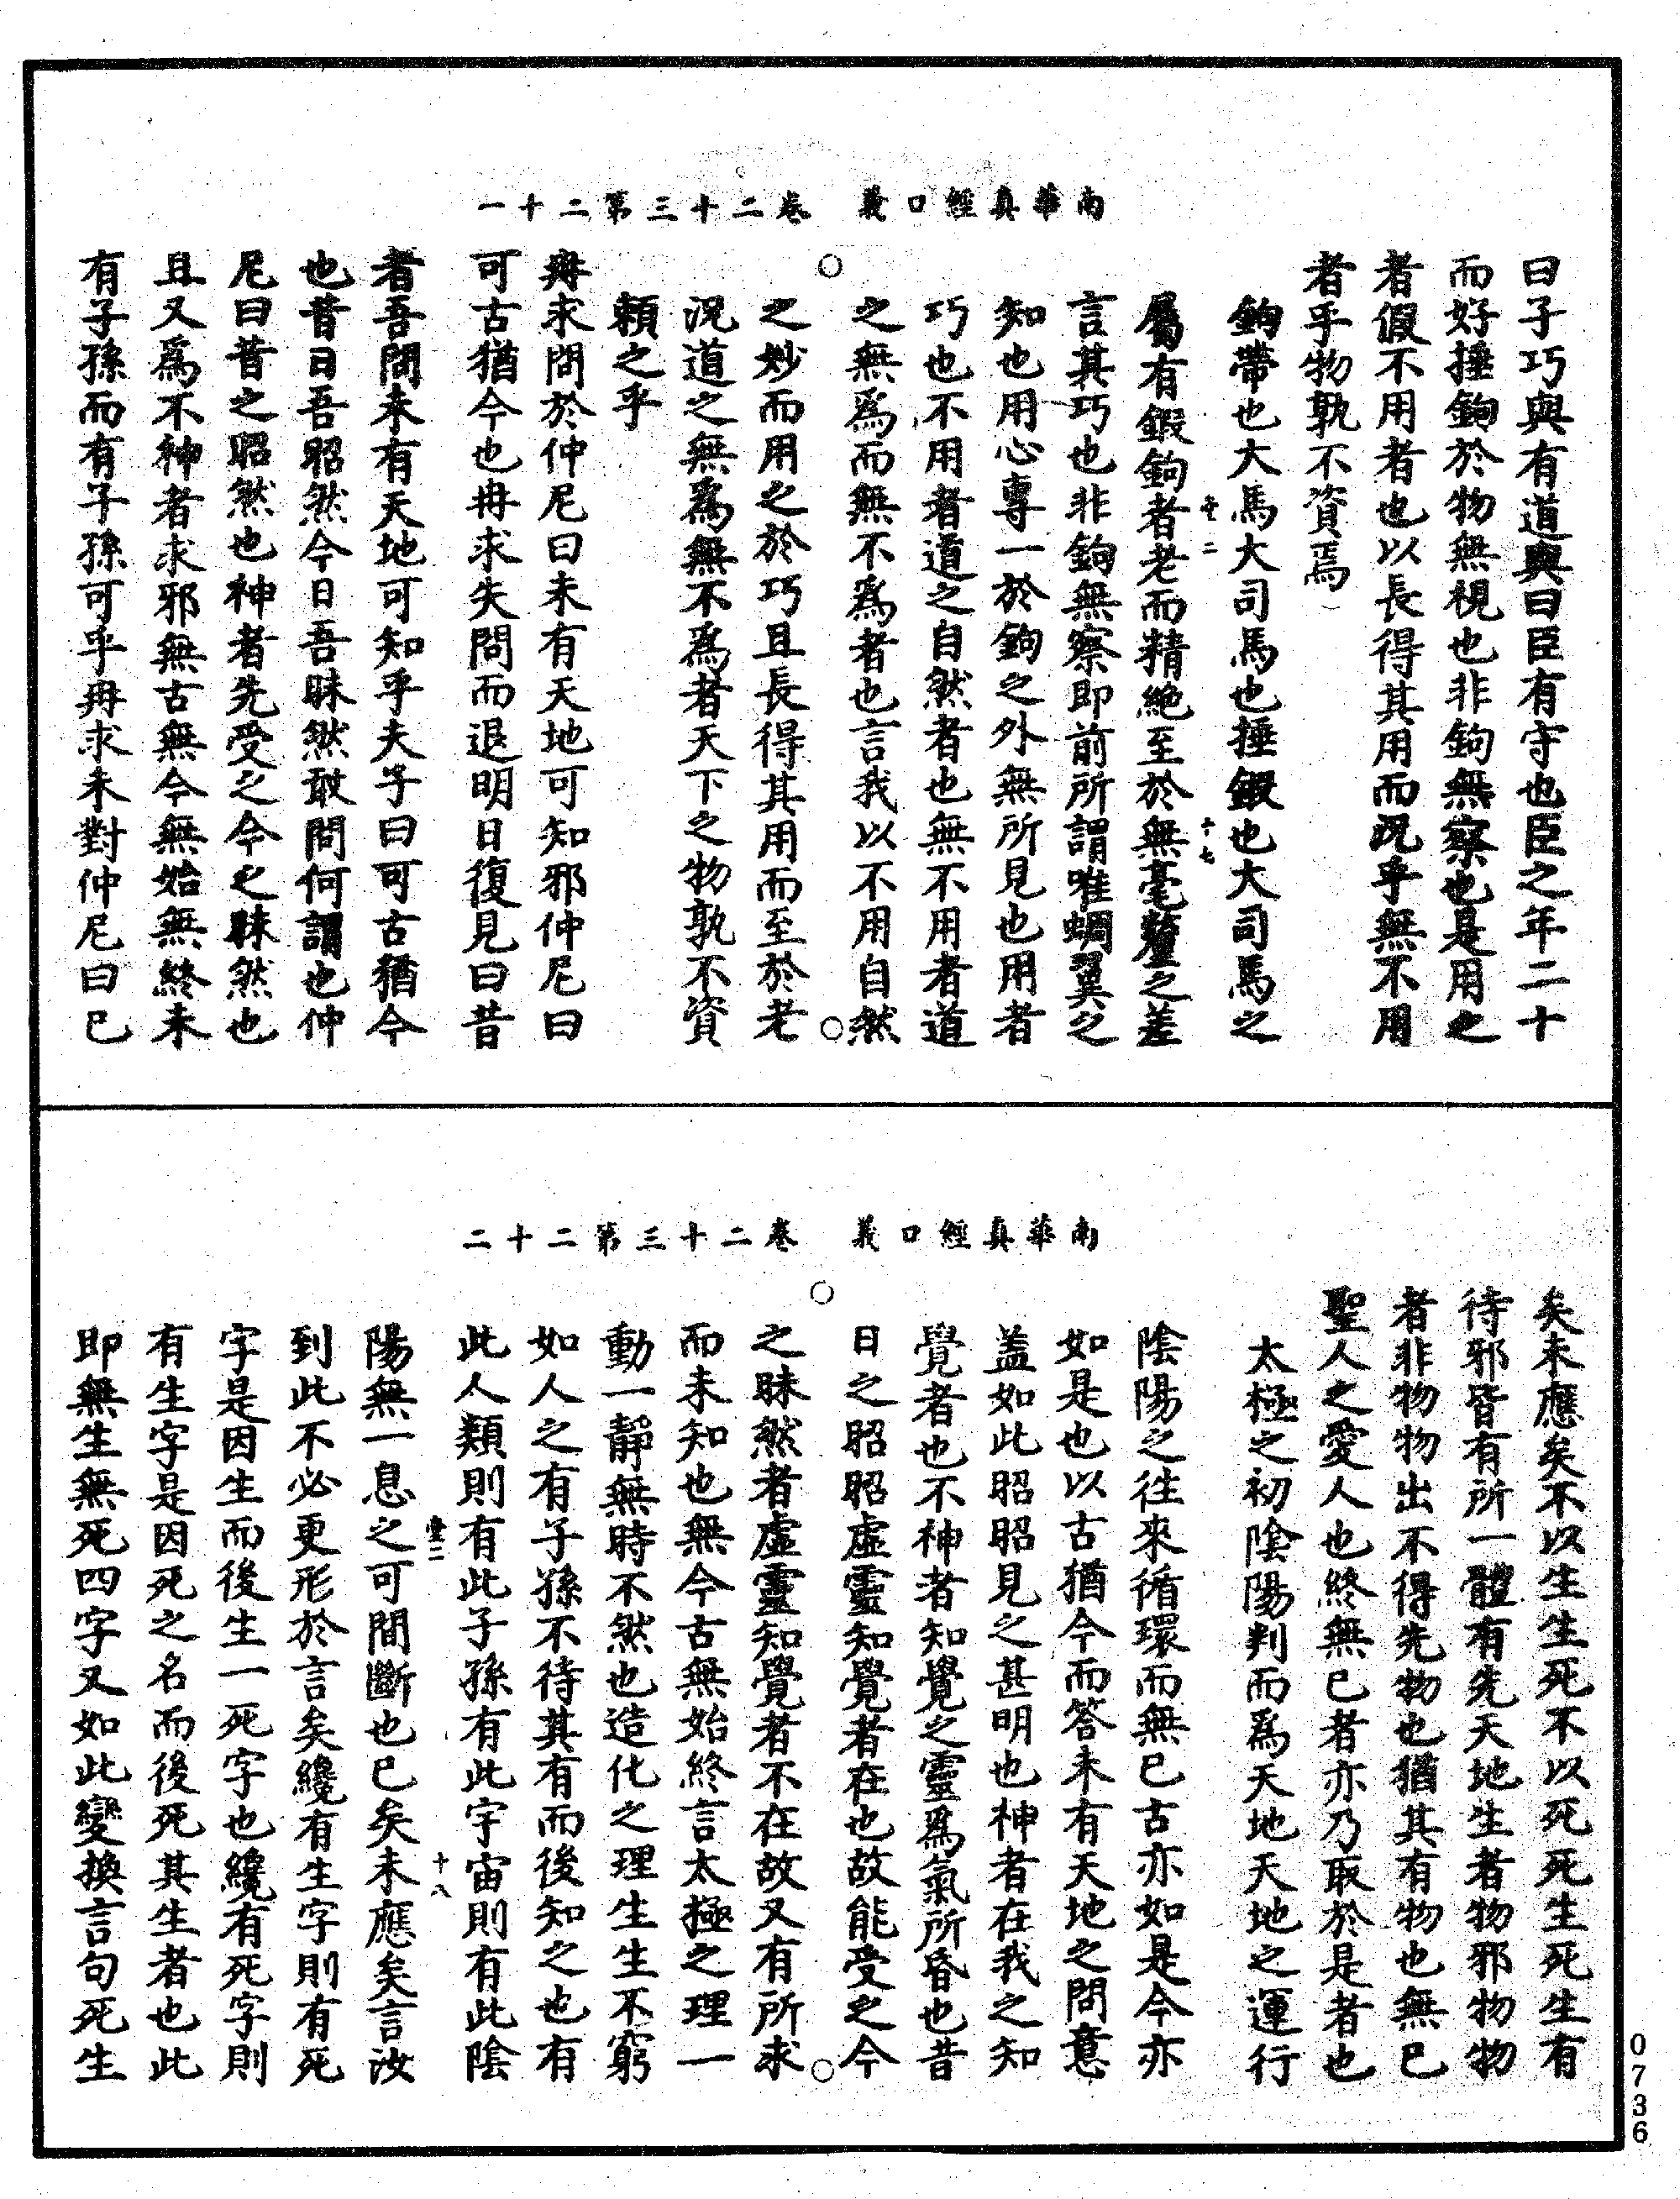 南華真經口義　卷二十三第二十一
曰子巧與有道與曰臣有守也臣之年二十
而好捶鉤於物無視也非鉤無察也是用之
者假不用者也以長得其用而況乎無不用
者乎物孰不資焉
鉤帶也大馬大司馬也捶鍛也大司馬之
屬有鍛鉤者老而精絶至於無毫釐之差
言其巧也非鉤無察即前所謂唯蜩翼之
知也用心專一於鉤之外無所見也用者
巧也不用者道之自然者也無不用者道
之無爲而無不爲者也言我以不用自然
之妙而用之於巧且長得其用而至於老
況道之無爲無不爲者天下之物孰不資
賴之乎
冉求問於仲尼曰未有天地可知邪仲尼曰
可古猶今也冉求失問而退明日復見曰昔
者吾問未有天地可知乎夫子曰可古猶今
也昔日吾昭然今日吾昧然敢問何謂也仲
尼曰昔之昭然也神者先受之今之昧然也
且又爲不神者求邪無古無今無始無終未
有子孫而有子孫可乎冉求未對仲尼曰已
十七
南華真經口義　卷二十三第二十二
矣未應矣不以生生死不以死死生死生有
待邪皆有所一體有先天地生者物邪物物
者非物物出不得先物也猶其有物也無已
聖人之愛人也終無已者亦乃取於是者也
太極之初陰陽判而爲天地天地之運行
陰陽之往來循環而無已古亦如是今亦
如是也以古猶今而答未有天地之問意
盖如此昭昭見之甚明也神者在我之知
覺者也不神者知覺之靈爲氣所昏也昔
日之昭昭虛靈知覺者在也故能受之今
之昧然者虛靈知覺者不在故又有所求
而未知也無今古無始終言太極之理一
動一靜無時不然也造化之理生生不窮
如人之有子孫不待其有而後知之也有
此人類則有此子孫有此宇宙則有此陰
陽無一息之可間斷也已矣未應矣言汝
到此不必更形於言矣纔有生字則有死
字是因生而後生一死字也纔有死字則
有生字是因死之名而後死其生者也此
即無生無死四字又如此變換言句死生
十八
0736